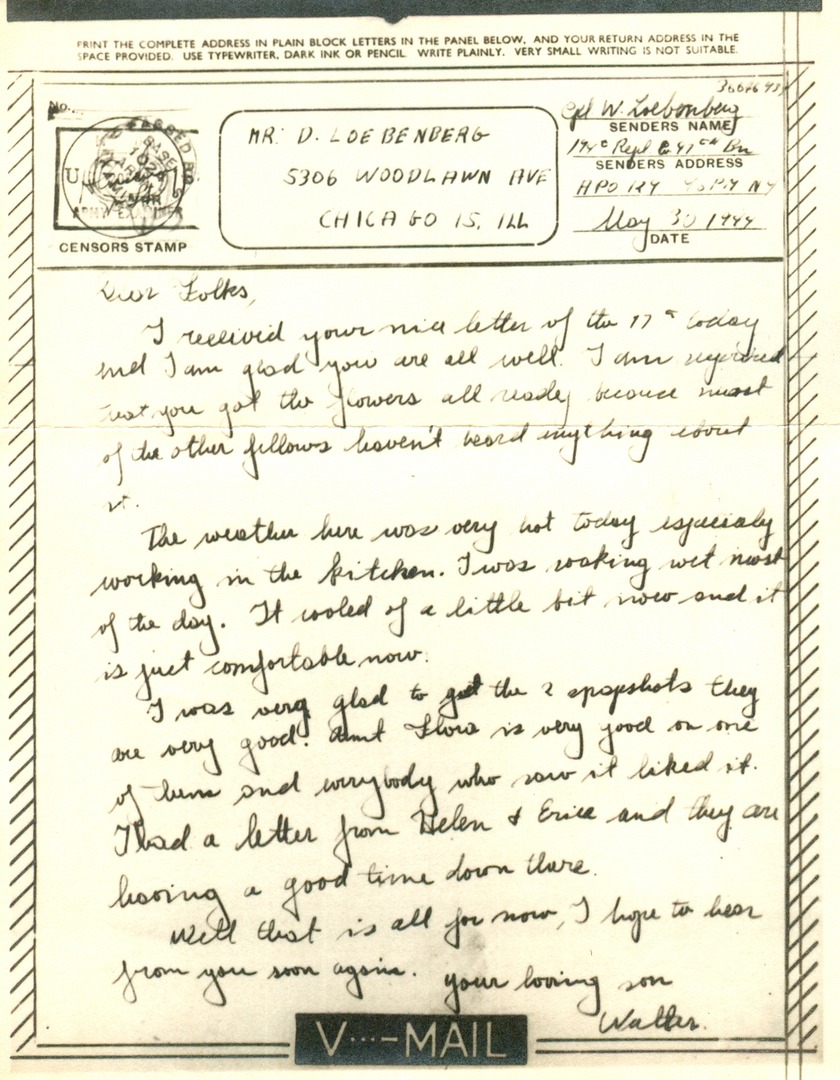 PRINT THE COMPLETE ADDRESS IN PLAIN BLOCK LETTERS IN THE PANEL BELOW, AND YOUR RETURN ADDRESS IN THE
SPACE PROVIDED. USE TYPEWRITER, DARK INK OR PENCIL. WRITE PLAINLY. VERY SMALL WRITING IS NOT SUITABLE.
No.
CENSORS STAMP
MR. D. LOEBENBERG
5306 WOODLAWN AVE
CHICAGO 15, ILL
Cpl W. Loebenberg
SENDERS NAME
Repl Co 41st Bn
SENDERS ADDRESS
APO NY
May 30 1944
DATE
Dear Folks,
I received your nice letter of the 17th today
and I am glad you are all well. I am surprised
that you got the flowers all ready because most
of the other fellows haven't heard anything about
it.
The weather here was very hot today especialy
working in the kitchen. I was soaking wet most
of the day. It cooled of a little bit now and it
is just comfortable now.
I was very glad to get the 2 snapshots they
are very good. Aunt Flora is very good on one
of them and everybody who saw it liked it.
I had a letter from Helen & Erica and they are
having a good time down there.
Well that is all for now, I hope to hear
from you soon again. your loving son
Walter.
V···-MAIL